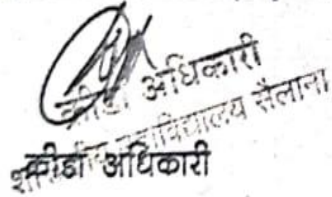 क्रीडा अधिकारी
महाविद्यालय सैलाना
क्रीडा अधिकारी